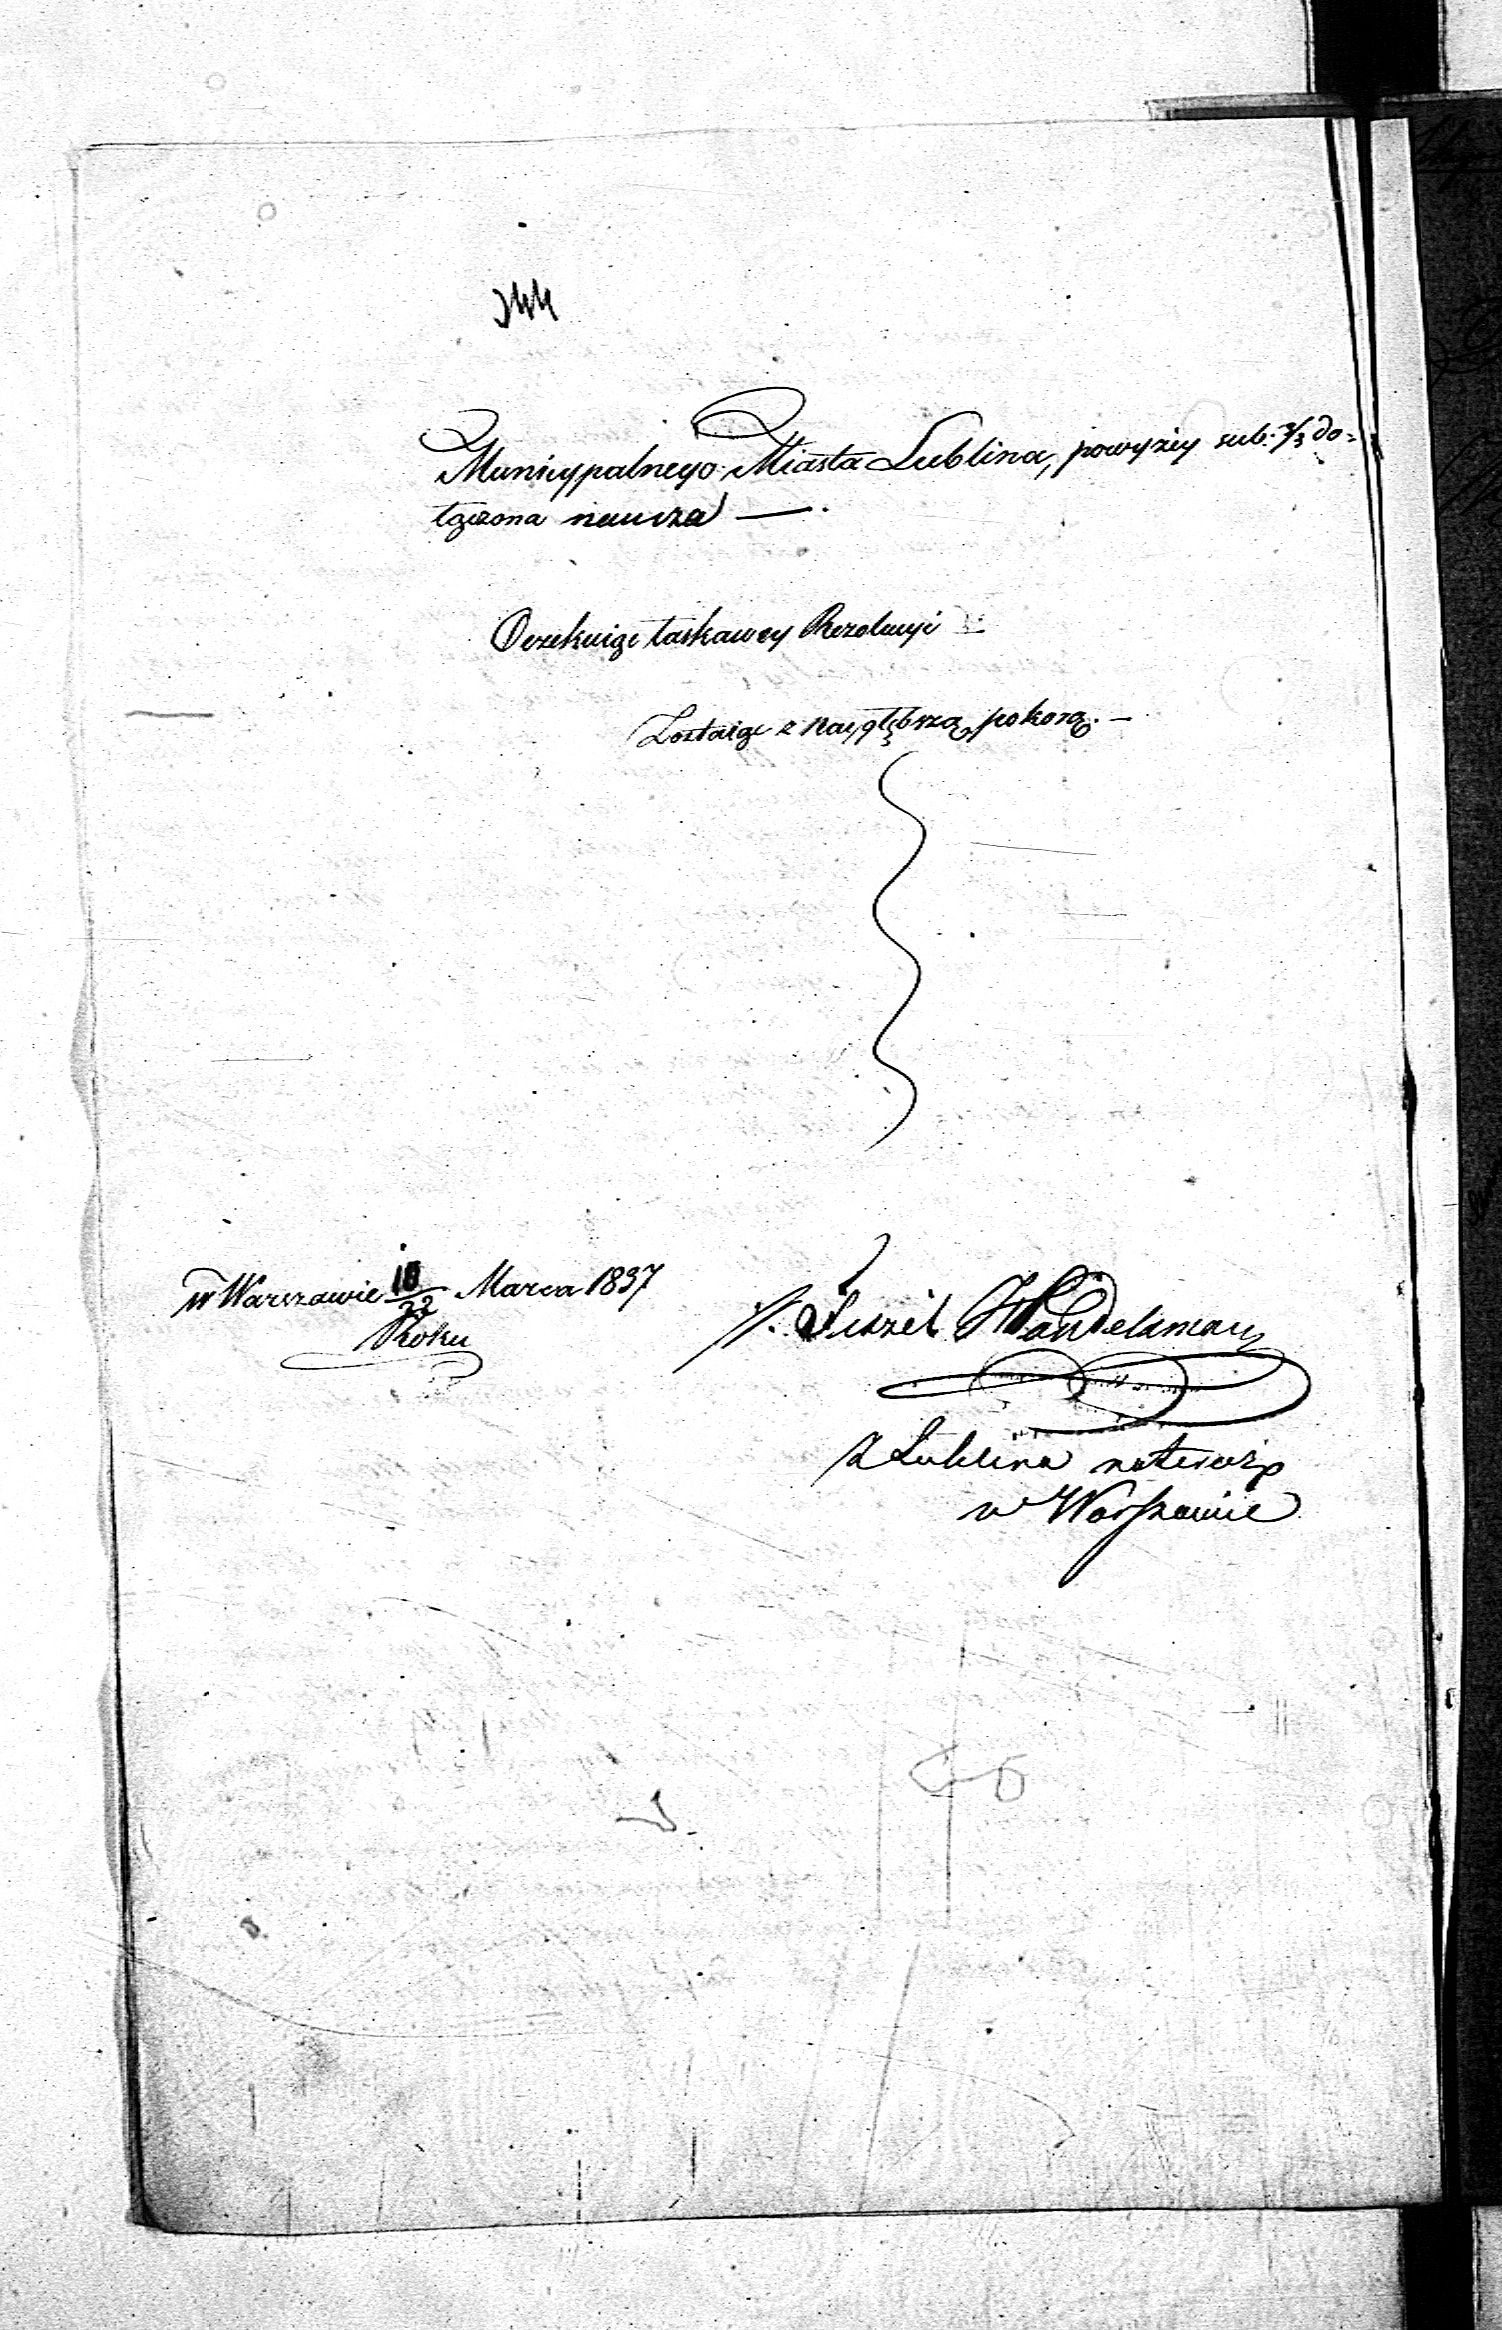 Municypalnego Miasta Lublina, powyżey sub: %3 do=
łączona naucza —.
Oczekuiąc łaskawey Rezolucyi
Zostaię z naygłębszą pokorą. —
w Warszawie 10/22 Marca 1837
Roku
Handelsman
z Lublina na teraz
w Warszawie